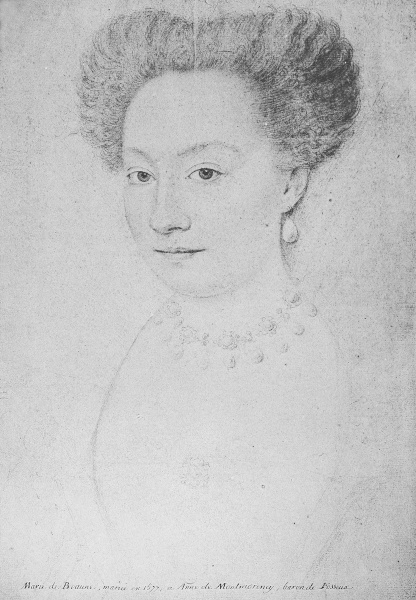 Marie de Beaune, mariée en 1577, a Anne de Montmorency, baron de Fosseux.